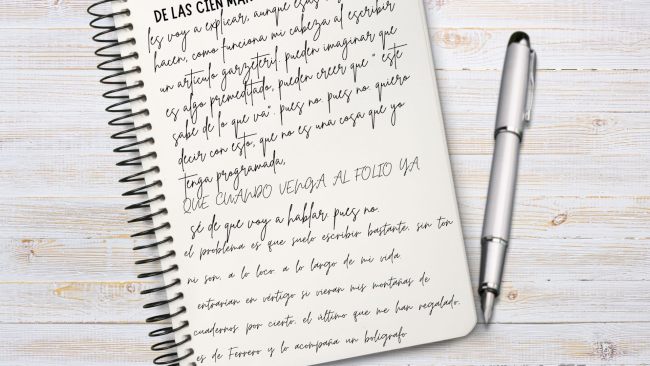 DE LAS CIEN MAN
les voy a explicar, aunque
hacen, como funciona mi cabeza al escribir
un artículo garzeteril. pueden imaginar que
es algo premeditado, pueden creer que " este
sabe de lo que va". pues no. pues no. quiero
decir con esto, que no es una cosa que yo
tenga programada,
QUE CUANDO VENGA AL FOLIO YA
sé de que voy a hablar. pues no.
el problema es que suelo escribir bastante, sin ton
ni son, a lo loco. a lo largo de mi vida.
entrarían en vértigo si vieran mis montañas de
cuadernos por cierto, el último que me han regalado,
es de Ferrero y lo acompaña un bolígrafo